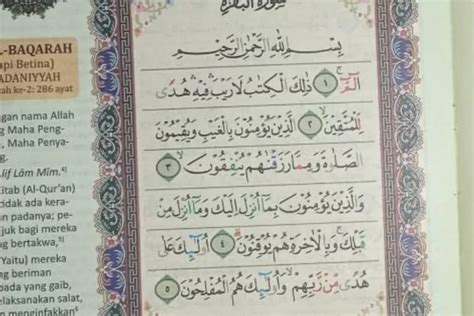 سورة البقرة
بِسْمِ اللّٰهِ الرَّحْمٰنِ الرَّحِيْمِ
الۤمّۤ ۚ ١ ذٰلِكَ الْكِتٰبُ لَا رَيْبَ ۛ فِيْهِ ۛ هُدًى
لِّلْمُتَّقِيْنَۙ ٢ الَّذِيْنَ يُؤْمِنُوْنَ بِالْغَيْبِ وَيُقِيْمُوْنَ
الصَّلٰوةَ وَمِمَّا رَزَقْنٰهُمْ يُنْفِقُوْنَ ۙ ٣
وَالَّذِيْنَ يُؤْمِنُوْنَ بِمَآ اُنْزِلَ اِلَيْكَ وَمَآ اُنْزِلَ مِنْ
قَبْلِكَ ۚ وَبِالْاٰخِرَةِ هُمْ يُوْقِنُوْنَۗ ٤ اُولٰۤىِٕكَ عَلٰى
هُدًى مِّنْ رَّبِّهِمْ ۙ وَاُولٰۤىِٕكَ هُمُ الْمُفْلِحُوْنَ ٥
L-BAQARAH
api Betina)
ADANIYYAH
ah ke-2: 286 ayat
ngan nama Allah
g Maha Peng-
, Maha Penya-
g.
lif Lâm Mîm.⁴⁾
itab (Al-Qur'an)
idak ada kera-
n padanya; pe-
juk bagi mereka
g bertakwa,⁵⁾
Yaitu) mereka
ng beriman
ada yang gaib,
elaksanakan salat,
n menginfakkan⁶⁾